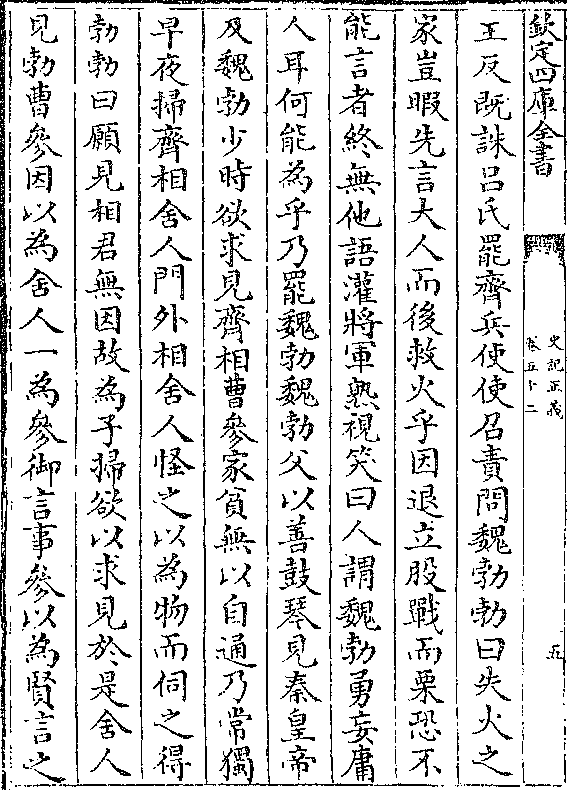 欽定四庫全書
史記正義
卷五十二
五
王反既誅呂氏罷齊兵使使召責問魏勃勃曰失火之
家豈暇先言大人而後救火乎因退立股戰而栗恐不
能言者終無他語灌將軍熟視笑曰人謂魏勃勇妄庸
人耳何能為乎乃罷魏勃魏勃父以善鼓琴見秦皇帝
及魏勃少時欲求見齊相曹參家貧無以自通乃常獨
早夜掃齊相舍人門外相舍人怪之以為物而伺之得
勃勃曰願見相君無因故為子掃欲以求見於是舍人
見勃曹參因以為舍人一為參御言事參以為賢言之